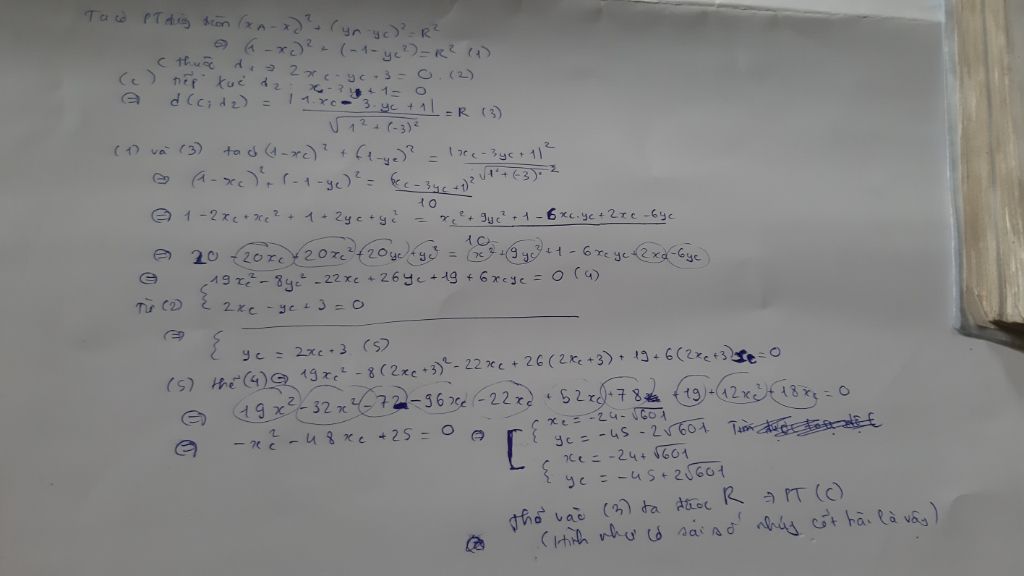 Ta có PT đường tròn (xA - xc)² + (yA - yc)² = R²
⇔ (1 - xc)² + (-1 - yc²) = R² (1)
C thuộc d1 ⇒ 2xc - yc + 3 = 0. (2)
(c) tiếp xúc d2: x - 3y + 1 = 0
⇔ d(c, d2) = |1.xc - 3.yc + 1| / √(1² + (-3)²) = R (3)
(1) và (3) ta có (1 - xc)² + (-1 - yc)² = |xc - 3yc + 1|² / √(1² + (-3)²)²
⇔ (1 - xc)² + (-1 - yc)² = (xc - 3yc + 1)² / 10
⇔ 1 - 2xc + xc² + 1 + 2yc + yc² = xc² + 9yc² + 1 - 6xc.yc + 2xc - 6yc / 10
⇔ 20 - 20xc + 20xc² + 20yc + yc² = x² + 9yc² + 1 - 6xcyc + 2xc - 6yc
⇔ { 19xc² - 8yc² - 22xc + 26yc + 19 + 6xcyc = 0 (4)
Từ (2) 2xc - yc + 3 = 0
⇔ { yc = 2xc + 3 (5)
(5) thế (4) ⇔ 19xc² - 8(2xc + 3)² - 22xc + 26(2xc + 3) + 19 + 6(2xc + 3)xc = 0
⇔ 19x² - 32x² - 72 - 96xc - 22xc + 52xc + 78 + 19 + 12xc² + 18xc = 0
⇔ -xc² - 48xc + 25 = 0 ⇔ [ { xc = -24 - √601
yc = -45 - 2√601
{ xc = -24 + √601
yc = -45 + 2√601
thế vào (3) ta được R ⇒ PT (C)
(Hình như có sai số nhưng cốt bài là vậy)